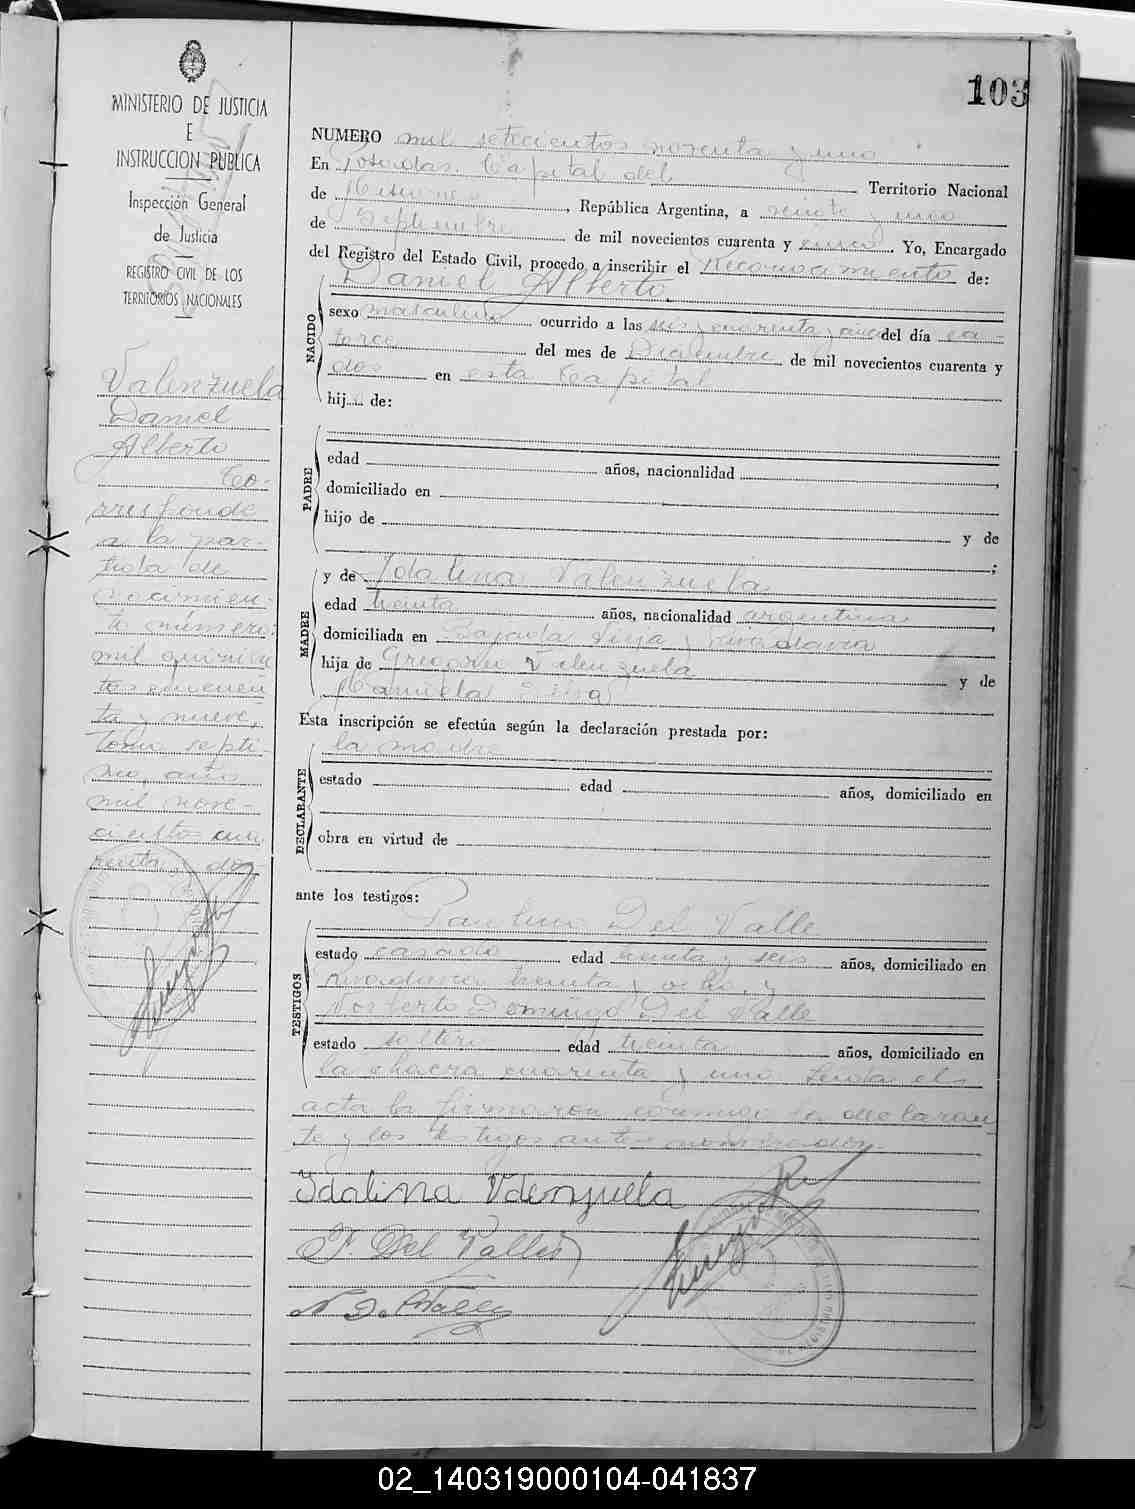 103
MINISTERIO DE JUSTICIA
E
INSTRUCCION PUBLICA
Inspección General
de Justicia
REGISTRO CIVIL DE LOS
TERRITORIOS NACIONALES
Valenzuela
Daniel
Alberto
Co-
rresponde
a la par-
tida de
nacimien-
to número
mil quinien
tos cincuen
ta y nueve,
tomo sépti-
mo, año
mil nove-
cientos cua
renta y dos
NUMERO mil setecientos noventa y uno
En Posadas, Capital del Territorio Nacional
de Misiones, República Argentina, a veinte y uno
de Septiembre de mil novecientos cuarenta y cinco. Yo, Encargado
del Registro del Estado Civil, procedo a inscribir el Reconocimiento de:
NACIDO
Daniel Alberto
sexo masculino ocurrido a las seis y cuarenta y cinco del día ca-
torce del mes de Diciembre de mil novecientos cuarenta y
dos en esta Capital
hij de:
PADRE
edad años, nacionalidad
domiciliado en
hijo de y de
;
MADRE
y de Idalina Valenzuela
edad treinta años, nacionalidad argentina
domiciliada en Bajada y Rivadavia
hija de Gregorio Valenzuela y de
Manuela
Esta inscripción se efectúa según la declaración prestada por:
DECLARANTE
la madre
estado edad años, domiciliado en
obra en virtud de
ante los testigos:
TESTIGOS
Paulino Del Valle
estado casado edad treinta y seis años, domiciliado en
treinta y ocho, y
Norberto Domingo Del Valle
estado soltero edad treinta años, domiciliado en
la chacra cuarenta y uno Leída el
acta la firmaron conmigo la declaran-
te y los testigos antes nombrados.
Idalina Valenzuela
P. Del Valle
N. D. Del Valle
02_140319000104-041837